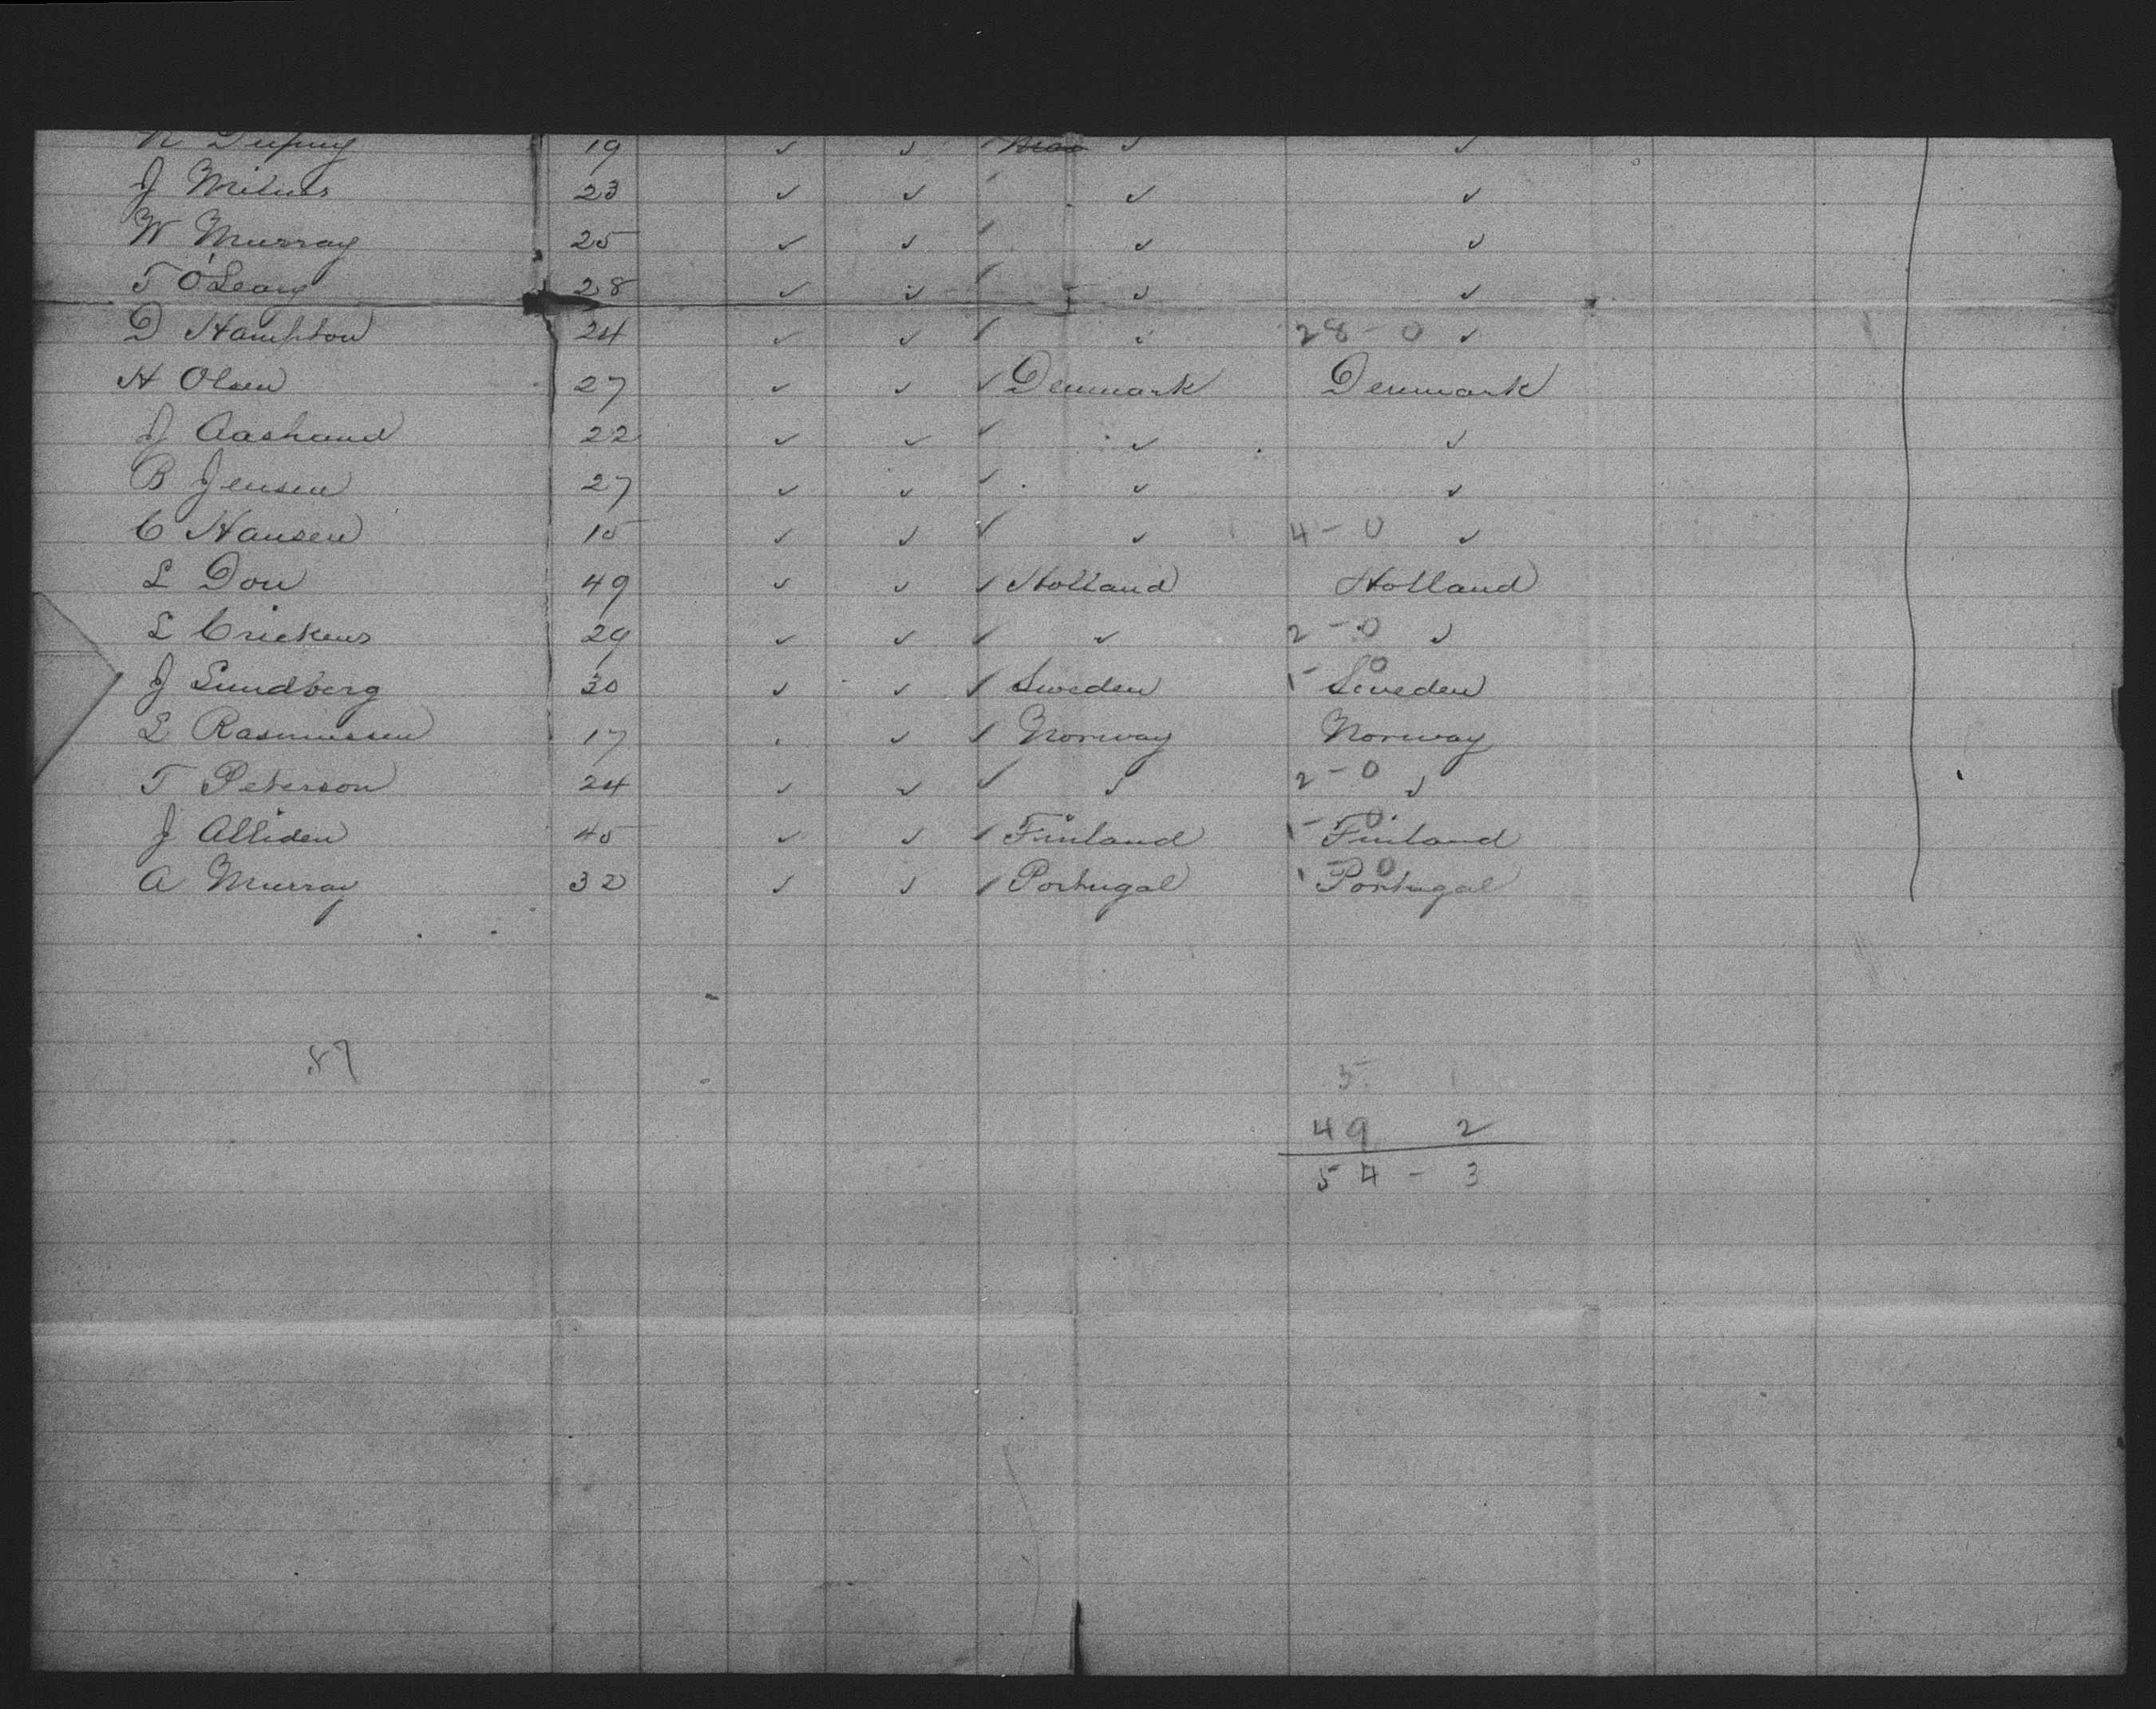 N Dupuy 19 ✓ ✓ ✓ ✓
J Milnes 23 ✓ ✓ ✓ ✓
W Murray 25 ✓ ✓ ✓ ✓ ✓
T O'Leary 28 ✓ ✓ ✓ ✓ ✓
D Hampton 24 ✓ ✓ ✓ ✓ 28-0 ✓
H Olsen 27 ✓ ✓ ✓ Denmark Denmark
J Aashand 22 ✓ ✓ ✓ ✓ ✓
B Jensen 27 ✓ ✓ ✓ ✓ ✓
C Hansen 15 ✓ ✓ ✓ ✓ 4-0 ✓
L Don 49 ✓ ✓ ✓ Holland Holland
L Criekens 29 ✓ ✓ ✓ ✓ 2-0 ✓
J Lundberg 30 ✓ ✓ ✓ Sweden 1-0 Sweden
L Rasmussen 17 ✓ ✓ Norway Norway
T Peterson 24 ✓ ✓ ✓ ✓ 2-0 ✓
J Alliden 45 ✓ ✓ ✓ Finland 1-0 Finland
A Murray 32 ✓ ✓ ✓ Portugal 1-0 Portugal
87
5 1
49 2
54-3